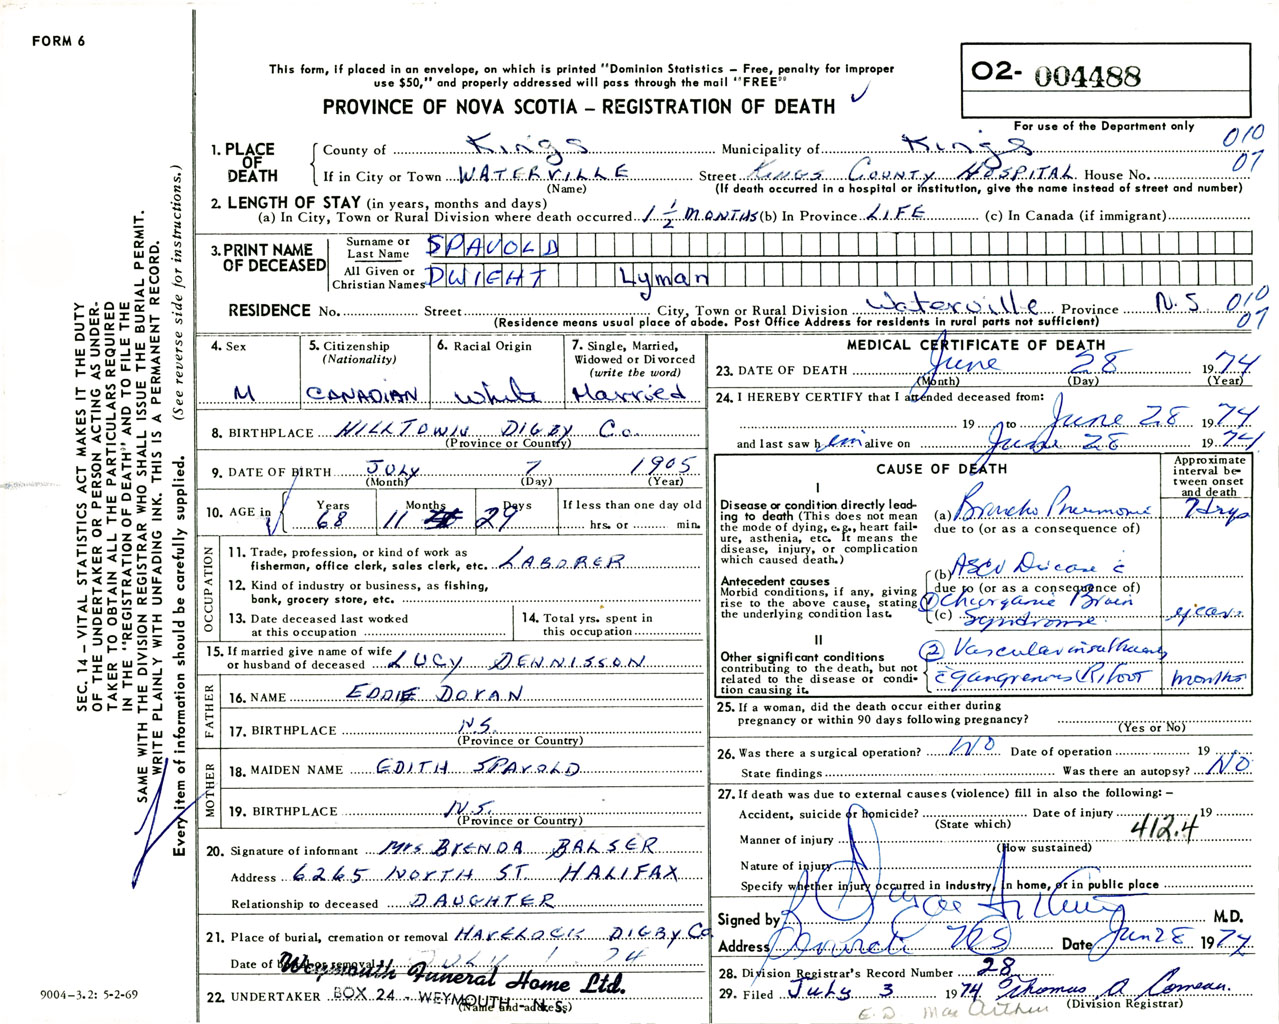 FORM 6
This form, if placed in an envelope, on which is printed "Dominion Statistics – Free, penalty for improper
use $50," and properly addressed will pass through the mail "FREE"
PROVINCE OF NOVA SCOTIA – REGISTRATION OF DEATH
O2- 004488
For use of the Department only
1. PLACE OF DEATH
County of Kings Municipality of Kings 010
If in City or Town WATERVILLE Street KINGS COUNTY HOSPITAL House No. 07
(Name) (If death occurred in a hospital or institution, give the name instead of street and number)
2. LENGTH OF STAY (in years, months and days)
(a) In City, Town or Rural Division where death occurred 1 1/2 MONTHS (b) In Province LIFE (c) In Canada (if immigrant)
3. PRINT NAME OF DECEASED
Surname or Last Name SPAVOLD
All Given or Christian Names DWIEHT Lyman
RESIDENCE No. Street City, Town or Rural Division Waterville Province N.S 010
(Residence means usual place of abode. Post Office Address for residents in rural parts not sufficient) 07
4. Sex M
5. Citizenship (Nationality) CANADIAN
6. Racial Origin White
7. Single, Married, Widowed or Divorced (write the word) Married
8. BIRTHPLACE HILLTOWN DIGBY Co.
(Province or Country)
9. DATE OF BIRTH JULY 7 1905
(Month) (Day) (Year)
10. AGE in Years 68 Months 11 Days 29 If less than one day old hrs. or min.
OCCUPATION
11. Trade, profession, or kind of work as
fisherman, office clerk, sales clerk, etc. LABORER
12. Kind of industry or business, as fishing,
bank, grocery store, etc.
13. Date deceased last worked
at this occupation
14. Total yrs. spent in
this occupation
15. If married give name of wife
or husband of deceased LUCY DENNISSON
FATHER
16. NAME EDDIE DORAN
17. BIRTHPLACE N.S.
(Province or Country)
MOTHER
18. MAIDEN NAME EDITH SPAVOLD
19. BIRTHPLACE N.S.
(Province or Country)
20. Signature of informant Mrs BRENDA BALSER
Address 6265 NORTH ST HALIFAX
Relationship to deceased DAUGHTER
21. Place of burial, cremation or removal HAVELOCK DIGBY Co.
Date of burial or removal JULY 1 74
Weymouth Funeral Home Ltd.
22. UNDERTAKER BOX 24 - WEYMOUTH - N.S.
(Name and address)
MEDICAL CERTIFICATE OF DEATH
23. DATE OF DEATH June 28 1974
(Month) (Day) (Year)
24. I HEREBY CERTIFY that I attended deceased from:
19 to June 28 1974
and last saw him alive on June 28 1974
CAUSE OF DEATH
Approximate interval between onset and death
I
Disease or condition directly lead-
ing to death (This does not mean
the mode of dying, e.g., heart fail-
ure, asthenia, etc. It means the
disease, injury, or complication
which caused death.)
(a) Broncho Pneumonia 7 days
due to (or as a consequence of)
Antecedent causes
Morbid conditions, if any, giving
rise to the above cause, stating
the underlying condition last.
(b) ASCV Disease c
due to (or as a consequence of)
(c) 1 Chr organic Brain
Syndrome
II
Other significant conditions
contributing to the death, but not
related to the disease or condi-
tion causing it.
2 Vascular insufficiency
c gangrenous Rt foot months
25. If a woman, did the death occur either during
pregnancy or within 90 days following pregnancy?
(Yes or No)
26. Was there a surgical operation? NO Date of operation 19
State findings Was there an autopsy? NO
27. If death was due to external causes (violence) fill in also the following: –
Accident, suicide or homicide? Date of injury 19
(State which) 412.4
Manner of injury
(How sustained)
Nature of injury
Specify whether injury occurred in industry, in home, or in public place
Signed by M.D.
Address NS Date Jun 28 1974
28. Division Registrar's Record Number 28
29. Filed July 3 1974 Thomas A Comeau.
(Division Registrar)
E.D MacArthur
SEC. 14 – VITAL STATISTICS ACT MAKES IT THE DUTY
OF THE UNDERTAKER OR PERSON ACTING AS UNDER-
TAKER TO OBTAIN ALL THE PARTICULARS REQUIRED
IN THE "REGISTRATION OF DEATH" AND TO FILE THE
SAME WITH THE DIVISION REGISTRAR WHO SHALL ISSUE THE BURIAL PERMIT.
WRITE PLAINLY WITH UNFADING INK. THIS IS A PERMANENT RECORD.
Every item of information should be carefully supplied. (See reverse side for instructions.)
9004-3.2: 5-2-69